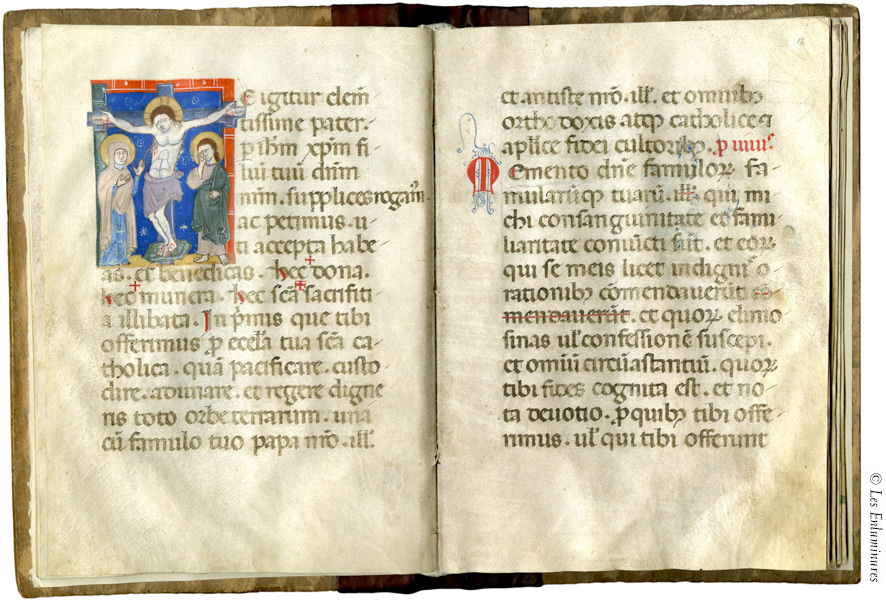 E igitur clem̄
tissime pater.
p ihm̄ xp̄m fi
lium tuū dn̄m
nr̄m. supplices rogam̄.
ac petimus. u
ti accepta habe
as. et benedicas. hec ✝ dona.
hec ✝ munera. hec sc̄a ✝ sacrifiti
a illibata. In p̄mis que tibi
offerimus p̄ eccl̄a tua sc̄a ca
tholica. quā pacificare. custo
dire. adunare. et regere digne
ris toto orbe terrarum. una
cū famulo tuo papa nr̄o. ill̄.
12
et antiste nr̄o. ill̄. et omnibꝫ
orthodoxis atqꝫ catholice ⁊
aplīce fidei cultoribꝫ. p̄ uiuis
Memento dn̄e famuloꝝ fa
mularūqꝫ tuarū. ill̄. qui mi
chi consanguinitate et fami
liaritate coniūcti sūt. et eoꝝ
qui se meis licet indignis o
rationibꝫ cōmendauerūt
mendauerūt. et quoꝝ elimo
sinas ul̄ confessionē suscepi.
et omiū circūastantiū. quoꝝ
tibi fides cognita est. et no
ta deuotio. p̄ quibꝫ tibi offe
rimus. ul̄ qui tibi offerunt
© Les Enluminures